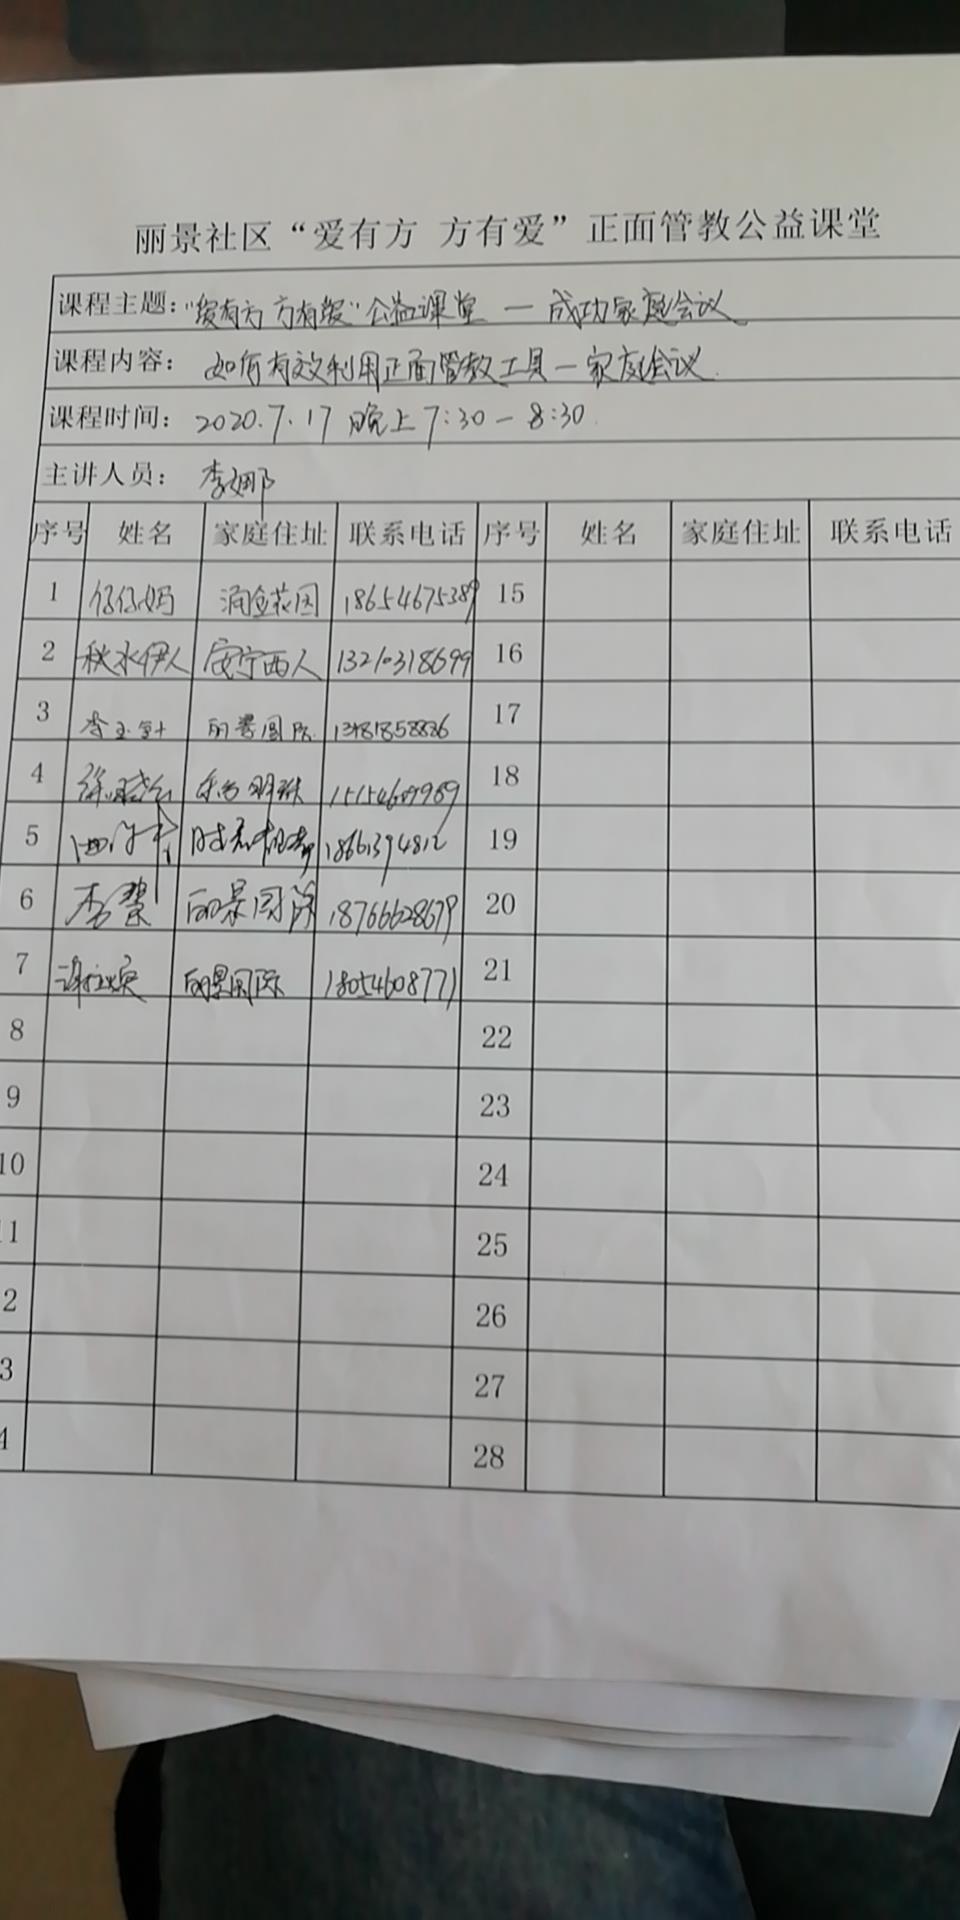 丽景社区“爱有方 方有爱”正面管教公益课堂
课程主题：“爱有方 方有爱”公益课堂 — 成功家庭会议
课程内容： 如何有效利用正面管教工具—家庭会议
课程时间： 2020.7.17 晚上7:30—8:30
主讲人员： 李娜
序号 姓名 家庭住址 联系电话 序号 姓名 家庭住址 联系电话
1 仔仔妈 涌金花园 18654675389 15
2 秋水伊人 安宁西人 13210318699 16
3 丽景国际 13481858886 17
4 15154609989 18
5 18661394812 19
6 李慧 丽景国际 18766628679 20
7 丽景国际 18054608771 21
8 22
9 23
10 24
11 25
2 26
3 27
4 28